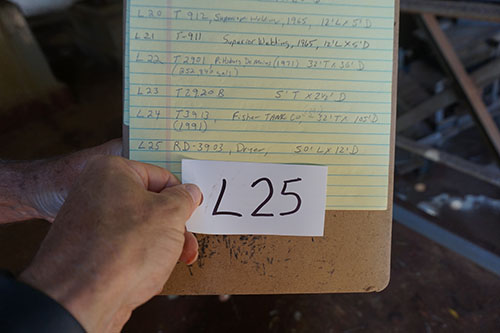 L20 T-912, Superior Welding, 1965, 12'L x 5'D
L21 T-911 Superior Welding, 1965, 12'L x 5'D
L22 T2901, Pittsburg Des Moines (1971) 32'T x 30'D
(252,340 gal)
L23 T2920B 5'T x 2½'D
L24 T3913, Fisher Tank Co, 32'T x 105'D
(1991)
L25 RD-3903, Dryer, 50'L x 12'D
L25